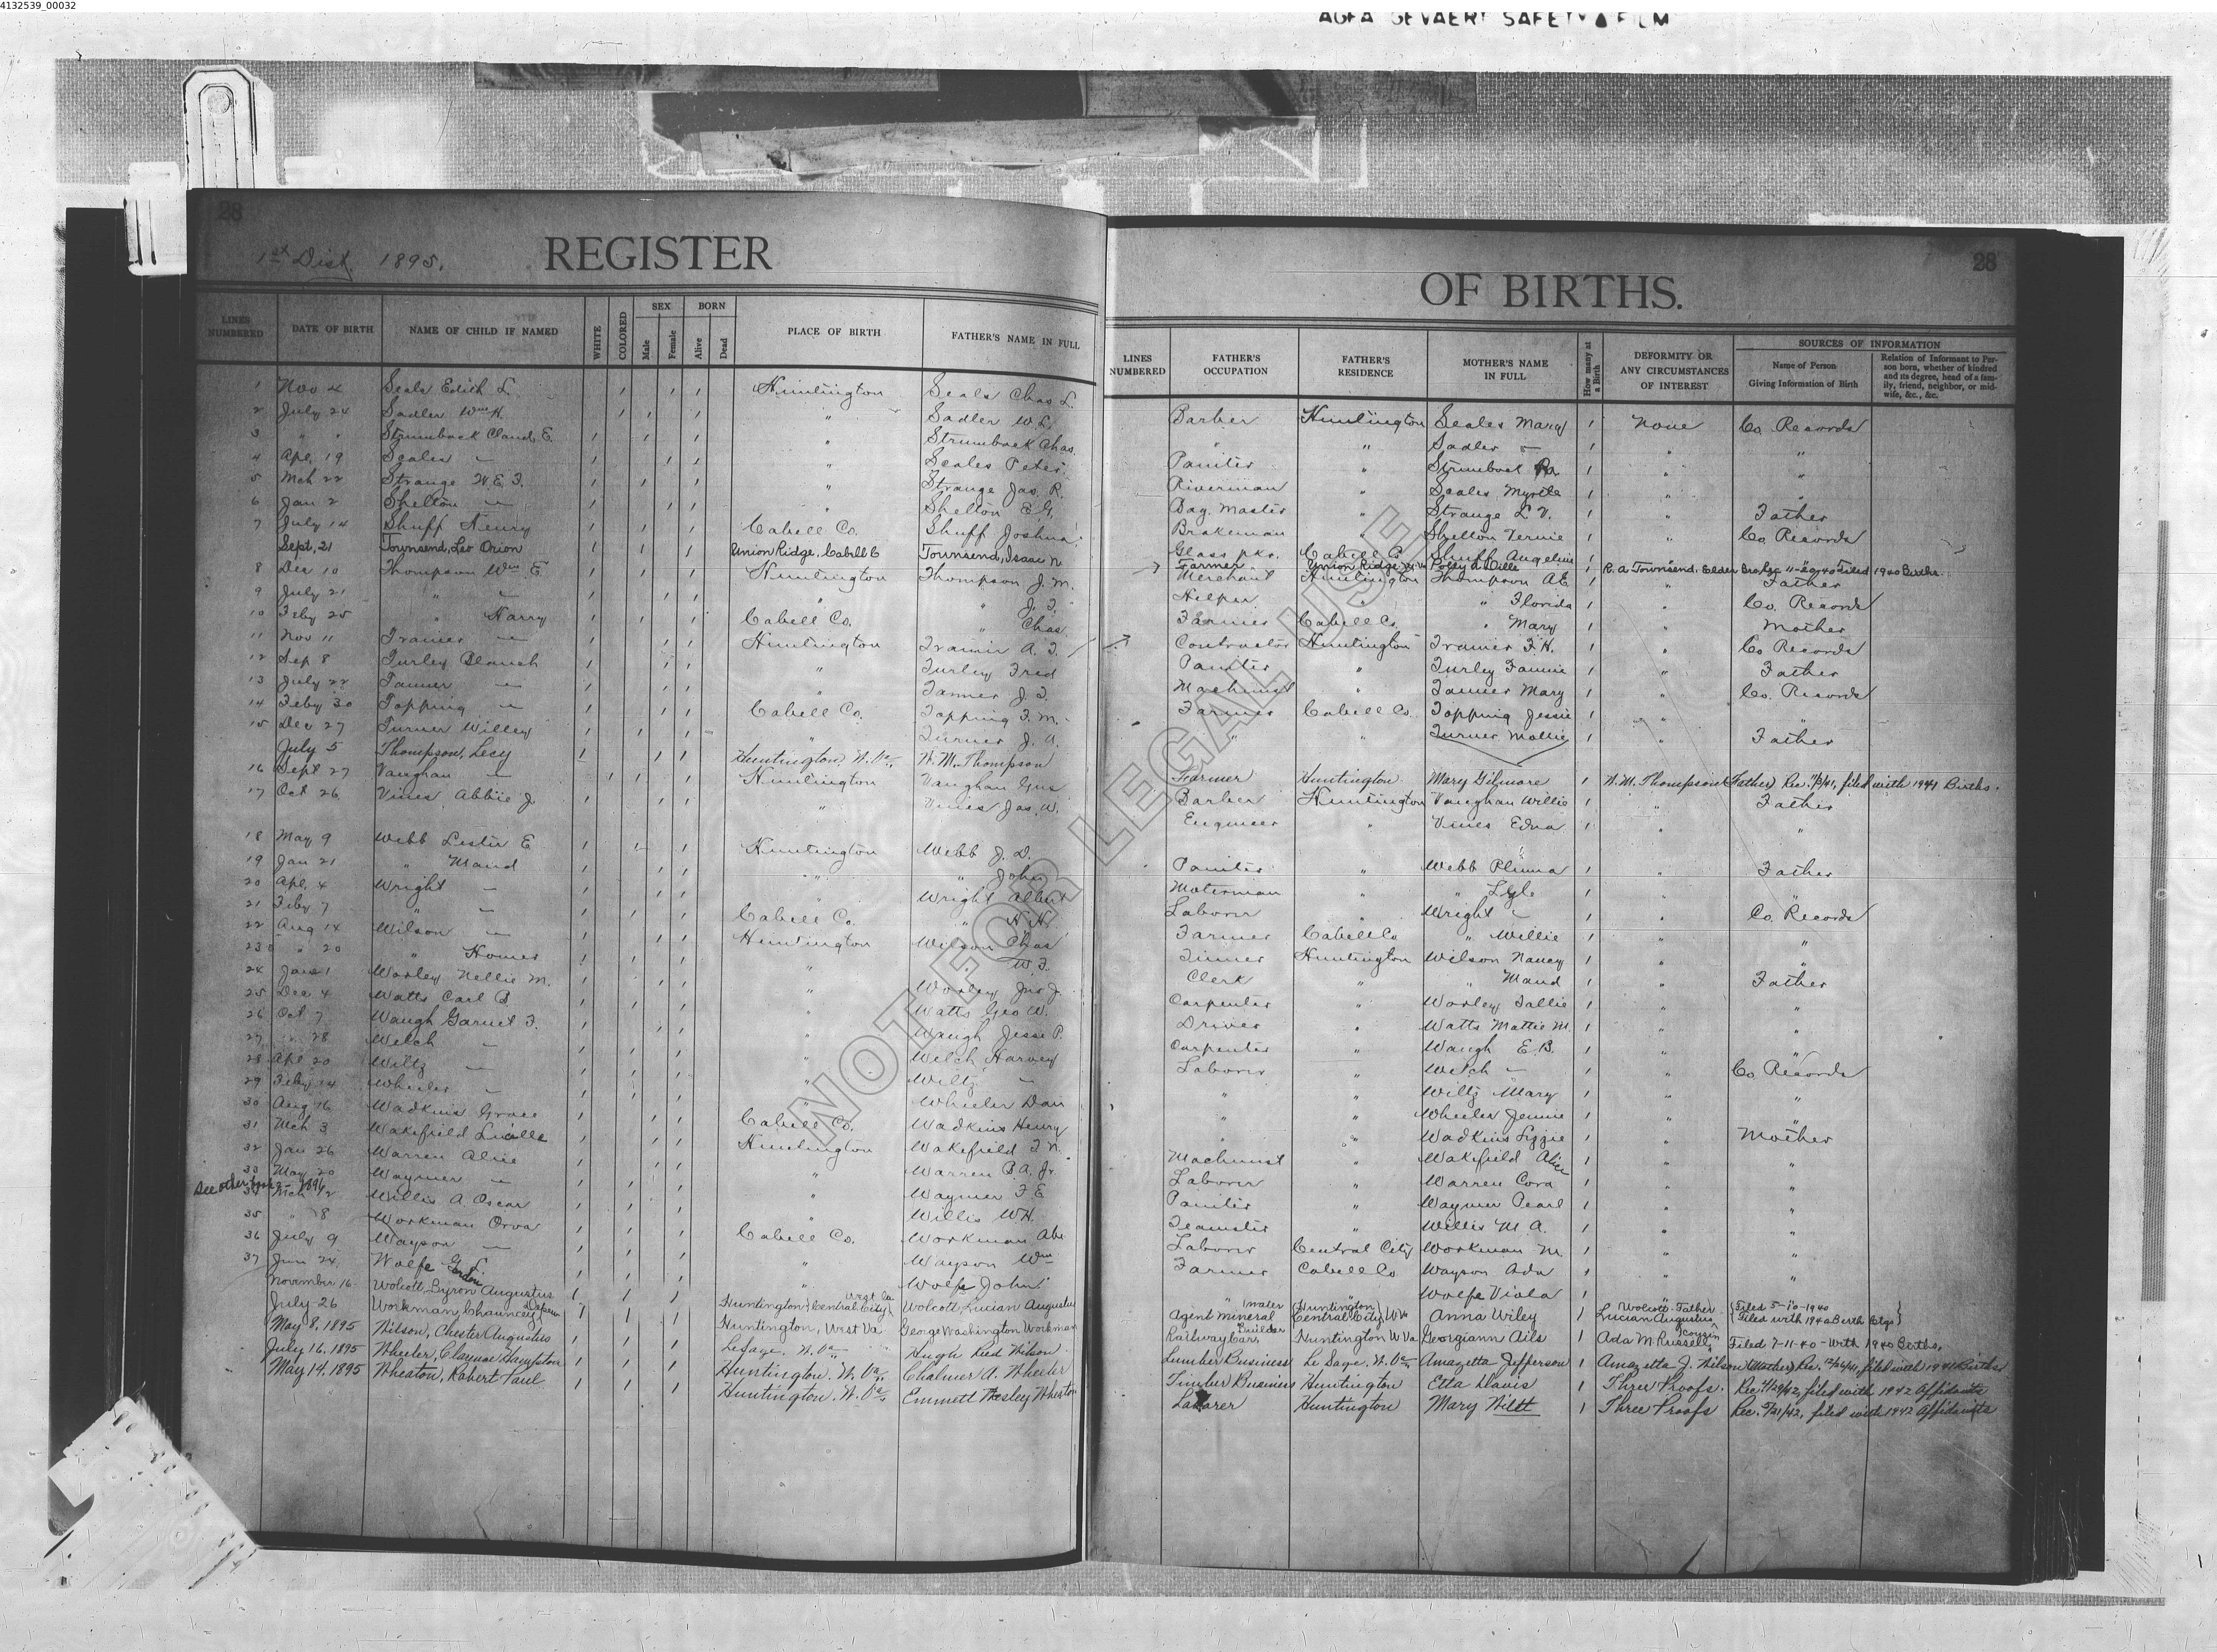 4132539_00032
AGFA GEVAERT SAFETY FILM
28
1st Dist. 1895.
REGISTER
LINES NUMBERED | DATE OF BIRTH | NAME OF CHILD IF NAMED | WHITE | COLORED | SEX Male Female | BORN Alive Dead | PLACE OF BIRTH | FATHER'S NAME IN FULL
1 Nov 4 Seals Edith L. Huntington Seals Chas L.
2 July 24 Sadler Wm H. " Sadler W. L.
3 " " Strumback Claude E. " Strumback Chas.
4 Apl. 19 Scales — " Scales Peter
5 Mch 22 Strange W. E. F. " Strange Jas. R.
6 Jan 2 Shelton — " Shelton E. G.
7 July 14 Shuff Henry Cabell Co. Shuff Joshua
Sept. 21 Townsend, Leo Orion Union Ridge, Cabell Co Townsend, Isaac N.
8 Dec 10 Thompson Wm. E. Huntington Thompson J. M.
9 July 21 " — " " J. F.
10 Feby 25 " Harry Cabell Co. " Chas.
11 Nov 11 Trainer — Huntington Trainer A. F.
12 Sep 8 Turley Blanch " Turley Fred
13 July 22 Tanner — " Tanner J. F.
14 Feby 30 Topping — Cabell Co. Topping F. M.
15 Dec 27 Turner Willey " Turner J. A.
July 5 Thompson, Lecy Huntington W. Va. W. M. Thompson
16 Sept 27 Vaughan — Huntington Vaughan Gus
17 Oct 26 Vines Abbie J. " Vines Jas. W.
18 May 9 Webb Leslie E. Huntington Webb J. D.
19 Jan 21 " Maud " " John
20 Apl. 4 Wright — " Wright Albert
21 Feby 7 " — Cabell Co. " H. H.
22 Aug 14 Wilson — Huntington Wilson Chas
23 " 20 " Homer " W. F.
24 Jan 1 Worley Nellie M. " Worley Jno J.
25 Dec 4 Watts Carl B. " Watts Geo W.
26 Oct 7 Waugh Garnet F. " Waugh Jesse P.
27 " 28 Welch — " Welch Harvey
28 Apl 20 Wiltz — " Wiltz —
29 Feby 14 Wheeler — " Wheeler Dan
30 Aug 16 Wadkins Grace Cabell Co. Wadkins Henry
31 Mch 3 Wakefield Lucille Huntington Wakefield F. N.
32 Jan 26 Warren Alice " Warren B. A. Jr.
33 May 20 Waymer — " Waymer F. E.
See other book - 1896
34 Mch 12 Willis A. Oscar " Willis W. H.
35 " 8 Workman Orva Cabell Co. Workman Abe
36 July 9 Wayson — " Wayson Wm
37 Jun 24 Wolfe G. L. " Wolfe John
November 16 Wolcott, Byron Augustus Huntington (Central City) West Va Wolcott, Lucian Augustus
July 26 Workman, Chauncey Huntington, West Va George Washington Workman
May 8, 1895 Wilson, Chester Augustus LeSage, W. Va. Hugh Reed Wilson
July 16, 1895 Wheeler, Claynoe Hampston Huntington, W. Va. Chalmer A. Wheeler
May 14, 1895 Wheaton, Robert Paul Huntington, W. Va. Emmett Wesley Wheaton
28
OF BIRTHS.
LINES NUMBERED | FATHER'S OCCUPATION | FATHER'S RESIDENCE | MOTHER'S NAME IN FULL | How many at a Birth | DEFORMITY OR ANY CIRCUMSTANCES OF INTEREST | SOURCES OF INFORMATION | Name of Person Giving Information of Birth | Relation of Informant to Person born, whether of kindred and its degree, head of a family, friend, neighbor, or midwife, &c., &c.
Barber Huntington Seales Mary 1 None Co. Records
" " Sadler — 1 " "
Painter " Strumback 1 " "
Riverman " Scales Myrtle 1 " "
Bag. Master " Strange L. V. 1 " Father
Brakeman " Shelton Tennie 1 " Co. Records
Glass pkr. Cabell Co Shuff Angeline 1
Farmer Union Ridge W Va Polly A. Mills 1 R. A. Townsend. Elder Bro. Filed 1940 Births.
Merchant Huntington Thompson A E 1 " Father
Helper " " Florida 1 " Co. Records
Farmer Cabell Co. " Mary 1 " Mother
Contractor Huntington Trainer F. H. 1 " Co Records
Painter " Turley Fannie 1 " Father
Machinist " Tanner Mary 1 " Co. Records
Farmer Cabell Co. Topping Jessie 1 " "
" " Turner Mollie 1 " Father
Farmer Huntington Mary Gilmore 1 W. M. Thompson (Father) Rec. filed with 1941 Births.
Barber Huntington Vaughan Willie 1 " Father
Engineer " Vines Edna 1 " "
Painter " Webb Pluma 1 " Father
Moterman " " Lyle 1 " "
Laborer " Wright — 1 " Co. Records
Farmer Cabell Co " Willie 1 " "
Tinner Huntington Wilson Nancy 1 " "
Clerk " " Maud 1 " Father
Carpenter " Worley Tallie 1 " "
Driver " Watts Mattie M. 1 " "
Carpenter " Waugh E. B. 1 " "
Laborer " Welch — 1 " Co Records
" " Wiltz Mary 1 " "
" " Wheeler Jennie 1 " "
" " Wadkins Lizzie 1 " Mother
Machinist " Wakefield Alice 1 " "
Laborer " Warren Cora 1 " "
Painter " Waymer Pearl 1 " "
Teamster " Willis M. A. 1 " "
Laborer Central City Workman M. 1 " "
Farmer Cabell Co Wayson Ada 1 " "
" " Wolfe Viola 1
Agent Mineral Water Huntington Central City W Va Anna Wiley 1 Lucian Augustus Wolcott - Father Filed 5-10-1940 Filed with 1940 Birth Ctgs
Railway Car Builder Huntington W Va Georgiann Ails 1 Ada M. Russell, Cousin Filed 7-11-40 - With 1940 Births.
Lumber Business Le Sage, W. Va. Amazetta Jefferson 1 Amazetta J. Wilson (Mother) Rec. 12/26/41, filed with 1941 Births
Timber Business Huntington Etta Davis 1 Three Proofs. Rec. filed with 1942 Affidavits
Laborer Huntington Mary Wiltt 1 Three Proofs Rec. filed with 1942 Affidavits
NOT FOR LEGAL USE